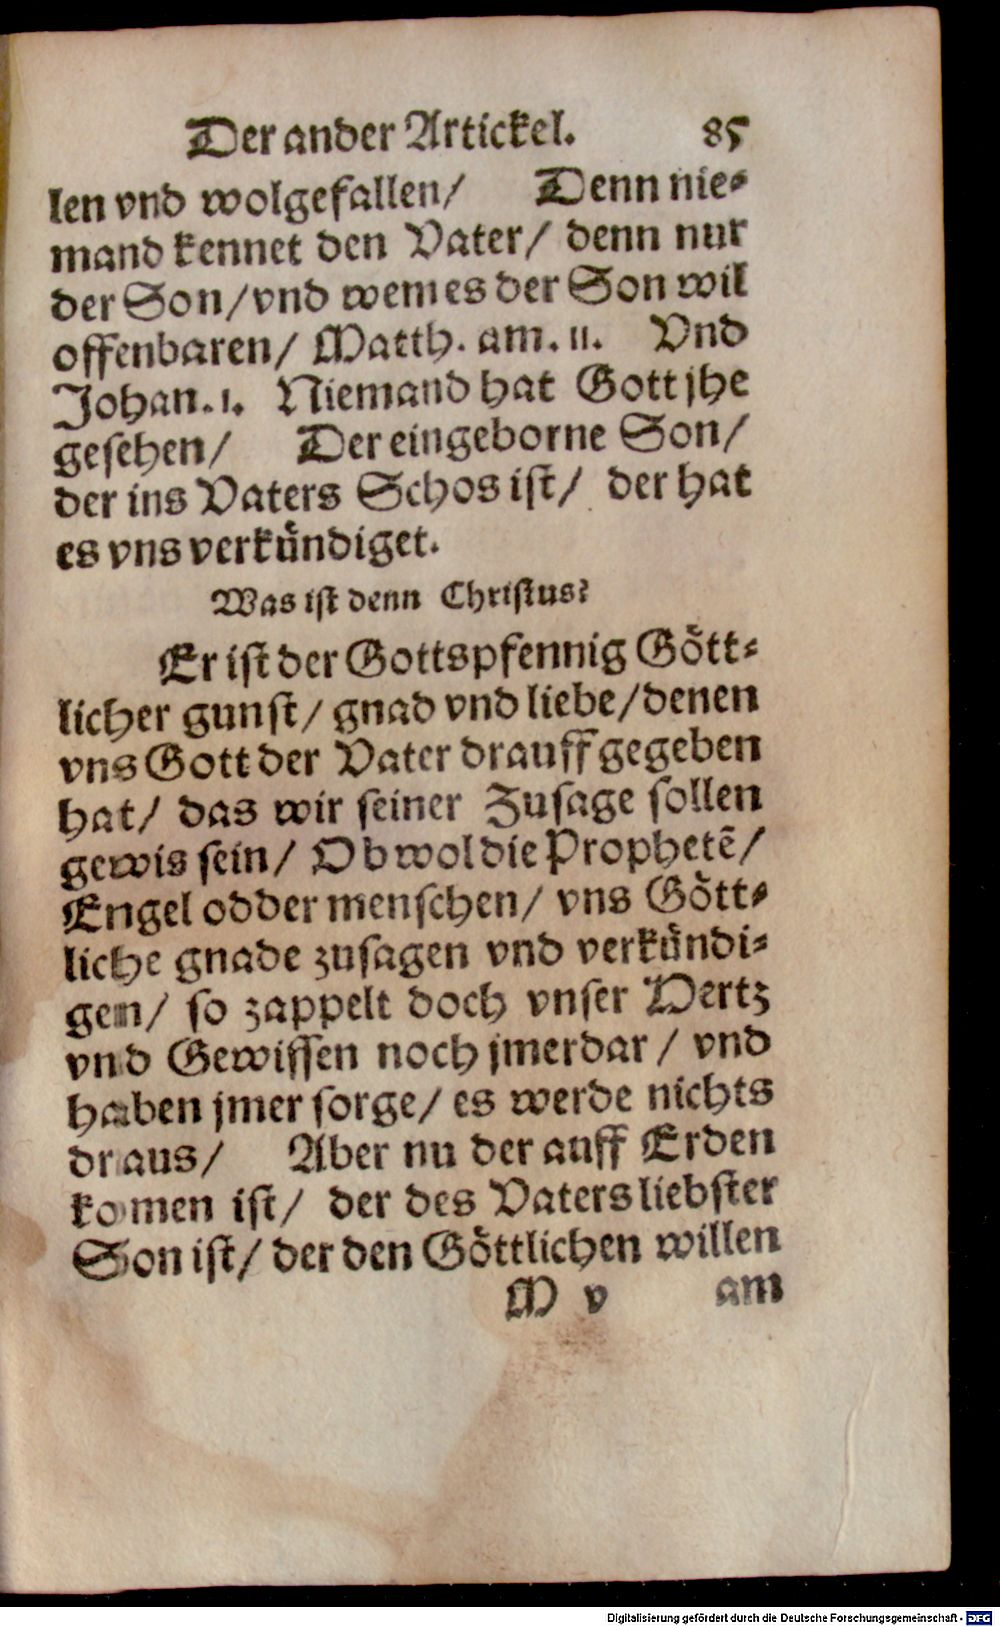 Der ander Artickel. 85
len vnd wolgefallen/ Denn nie-
mand kennet den Vater/ denn nur
der Son/vnd wem es der Son wil
offenbaren/ Matth. am. 11. Vnd
Johan. 1. Niemand hat Gott jhe
gesehen/ Der eingeborne Son/
der ins Vaters Schos ist/ der hat
es vns verkuͤndiget.
Was ist denn Christus?
Er ist der Gottspfennig Goͤtt-
licher gunst/ gnad vnd liebe/denen
vns Gott der Vater drauff gegeben
hat/ das wir seiner Zusage sollen
gewis sein/ Ob wol die Prophetē/
Engel odder menschen/ vns Goͤtt-
liche gnade zusagen vnd verkuͤndi-
gen/ so zappelt doch vnser Hertz
vnd Gewissen noch jmerdar/ vnd
haben jmer sorge/ es werde nichts
draus/ Aber nu der auff Erden
komen ist/ der des Vaters liebster
Son ist/ der den Goͤttlichen willen
M v am
Digitalisierung gefördert durch die Deutsche Forschungsgemeinschaft - DFG